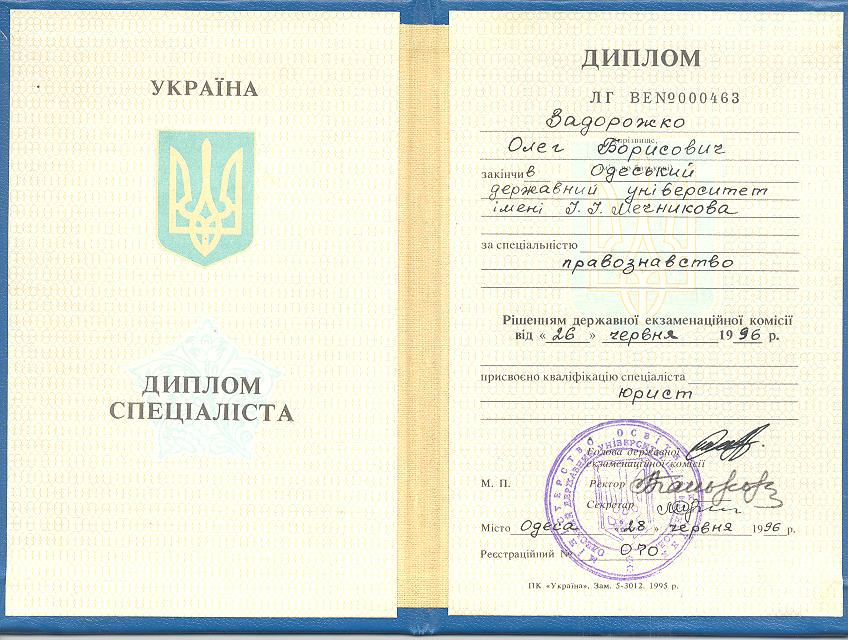 УКРАЇНА
ДИПЛОМ
СПЕЦІАЛІСТА
ДИПЛОМ
ЛГ ВЕ№000463
Задорожко
прізвище,
Олег Борисович
закінчив Одеський
державний університет
імені І. І. Мечникова
за спеціальністю
правознавство
Рішенням державної екзаменаційної комісії
від «26» червня 1996 р.
присвоєно кваліфікацію спеціаліста
юрист
Голова державної
екзаменаційної комісії
М. П. Ректор
Секретар
Місто Одеса «28» червня 1996 р.
Реєстраційний № 070
МІНІСТЕРСТВО ОСВІТИ
ПК «Україна», Зам. 5-3012. 1995 р.